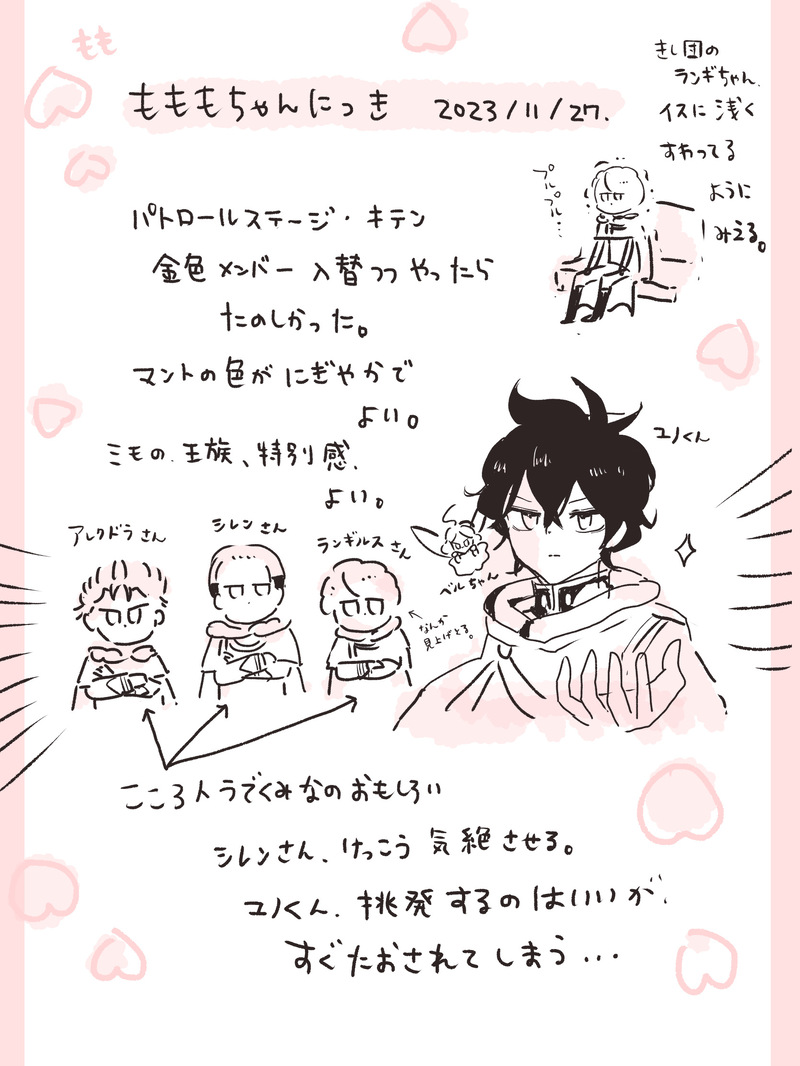 もも
もももちゃんにっき 2023/11/27.
きし団の
ランギちゃん、
イスに浅く
すわってる
ように
みえる。
プルプル…
パトロールステージ・キテン
金色メンバー入替つつやったら
たのしかった。
マントの色がにぎやかで
よい。
ミモの、王族、特別感、
よい。
ユノくん
アレクドラさん
シレンさん
ランギルスさん
ベルちゃん
なんか
見上げとる。
こころ人うでくみなのおもしろい
シレンさん、けっこう気絶させる。
ユノくん、挑発するのはいいが、
すぐたおされてしまう...